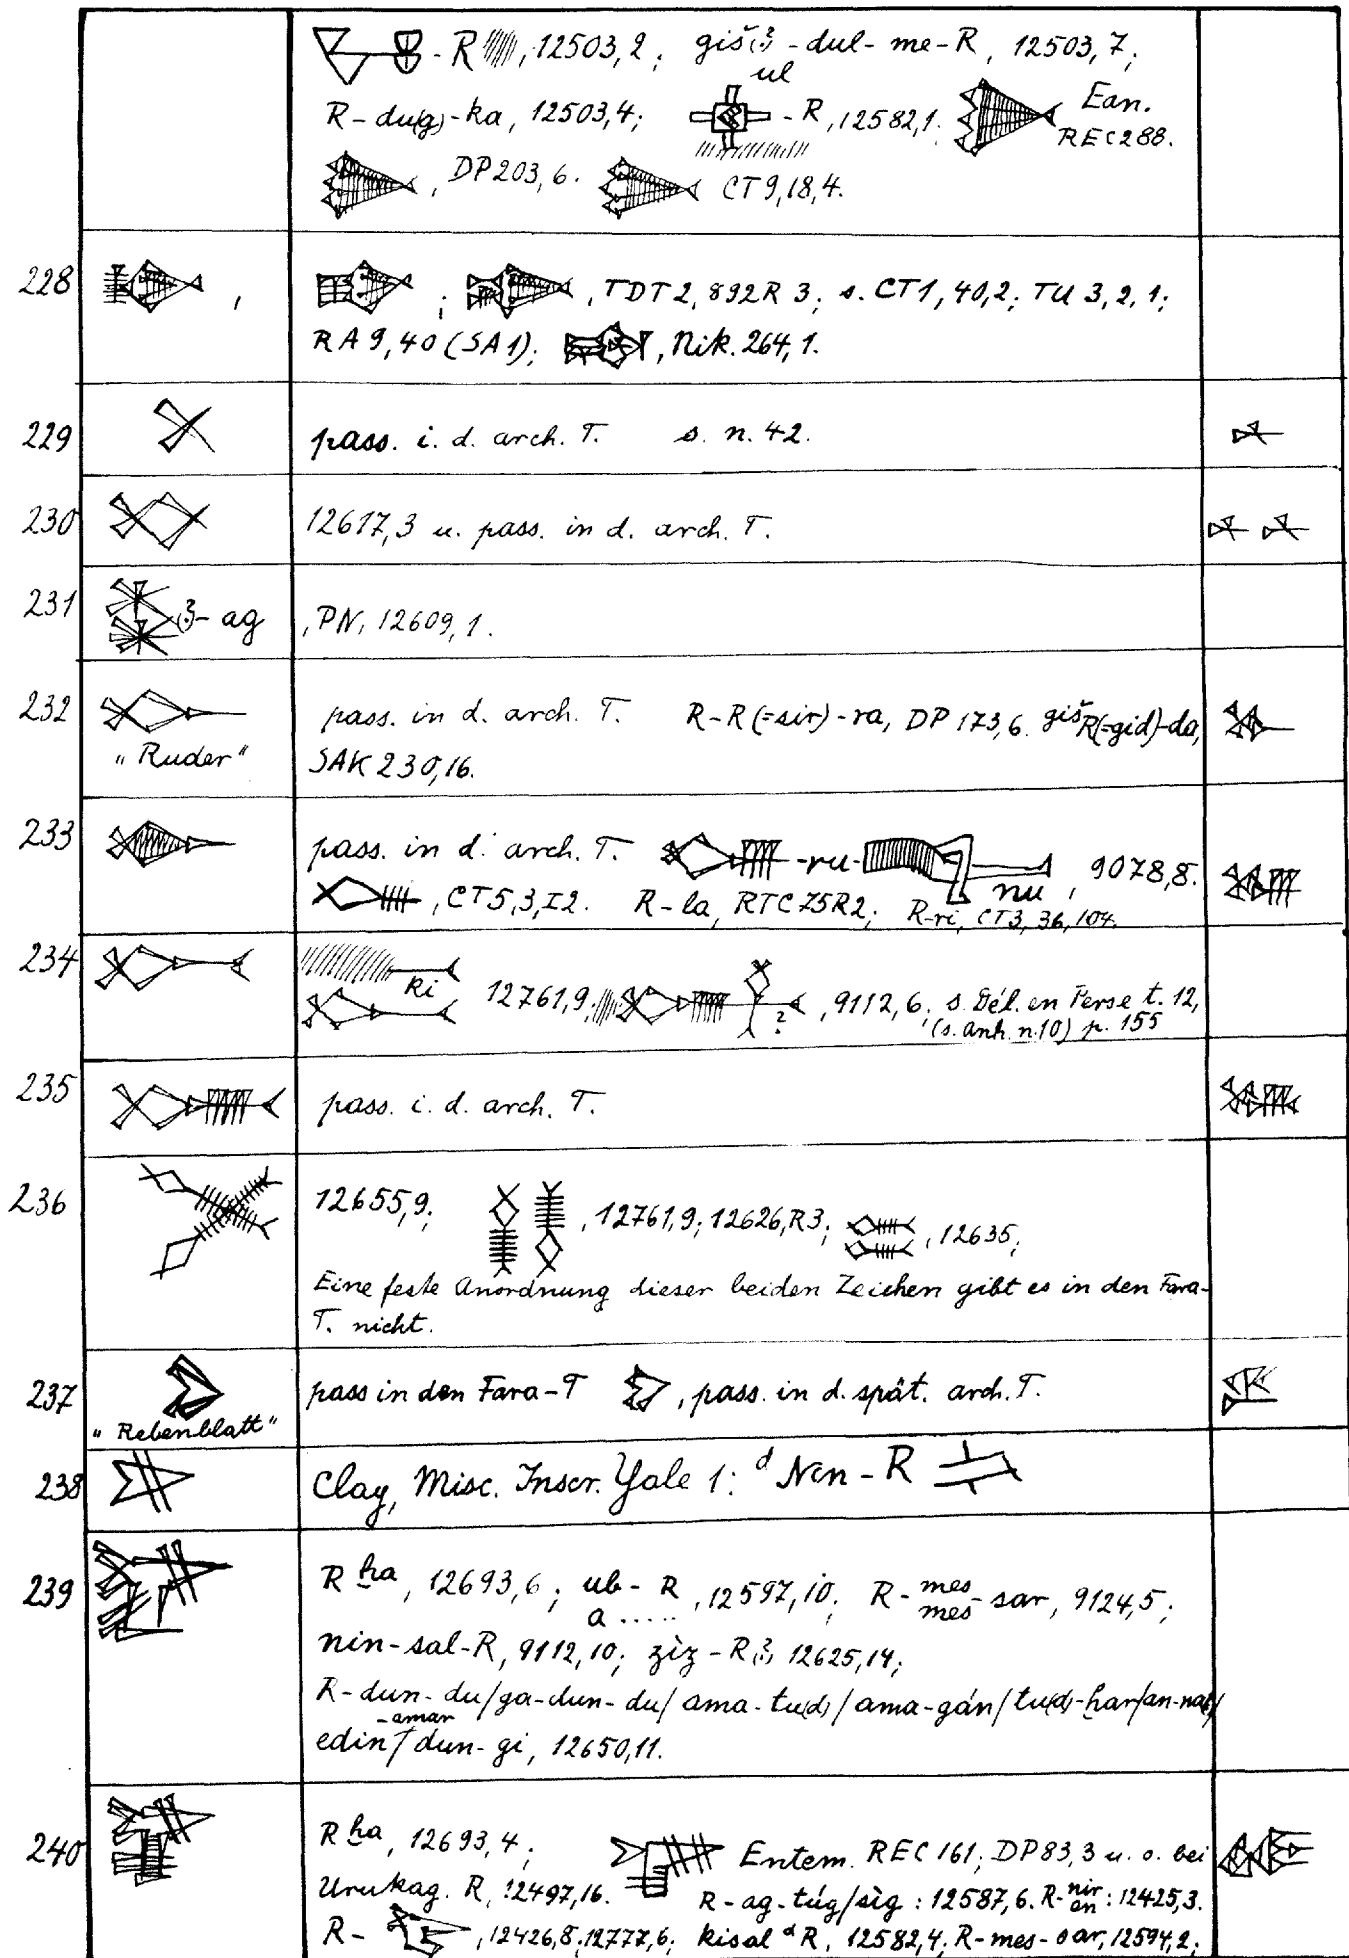 - R , 12503,2; giš(?) -dul-me-R, 12503,7;
ul
R-du(g)-ka, 12503,4; -R, 12582,1. Ean.
REC 288.
, DP 203,6. CT 9,18,4.
228 , ; , TDT 2, 892 R 3; s. CT 1, 40,2; TU 3, 2, 1;
RA 9, 40 (SA 1); , Nik. 264, 1.
229 pass. i. d. arch. T. s. n. 42.
230 12617,3 u. pass. in d. arch. T.
231 (?)-ag , PN, 12609,1.
232 pass. in d. arch. T. R-R(=sir)-ra, DP 173,6. giš R(=gid)-da,
"Ruder" SAK 230,16.
233 pass. in d. arch. T. -ru- nu, 9078,8.
, CT 5,3,I2. R-la, RTC 75 R 2; R-ri, CT 3, 36, 104.
234 ki 12761,9; ? , 9112,6; s. Dél. en Perse t. 12,
(s. anh. n. 10) p. 155
235 pass. i. d. arch. T.
236 12655,9; , 12761,9; 12626,R3; , 12635;
Eine feste Anordnung dieser beiden Zeichen gibt es in den Fara-
T. nicht.
237 pass in den Fara-T , pass. in d. spät. arch. T.
"Rebenblatt"
238 Clay, Misc. Inscr. Yale 1: d Nin-R
239 R ḫa, 12693,6; ub-R, 12597,10; R-mes-sar, 9124,5;
a ..... mes
nin-sal-R, 9112,10; zìz-R(?), 12625,14;
R-dun-du/ga-dun-du/ama-tu(d)/ama-gán/tu(d)-ḫar/an-na/
-amar
edin/dun-gi, 12650,11.
240 R ḫa, 12693,4; Entem. REC 161; DP 83,3 u. o. bei
Urukag. R, 12497,16. R-ag-túg/sìg: 12587,6. R-nir: 12425,3.
an
R- , 12426,8; 12777,6; kisal d R, 12582,4; R-mes-sar, 12594,2;